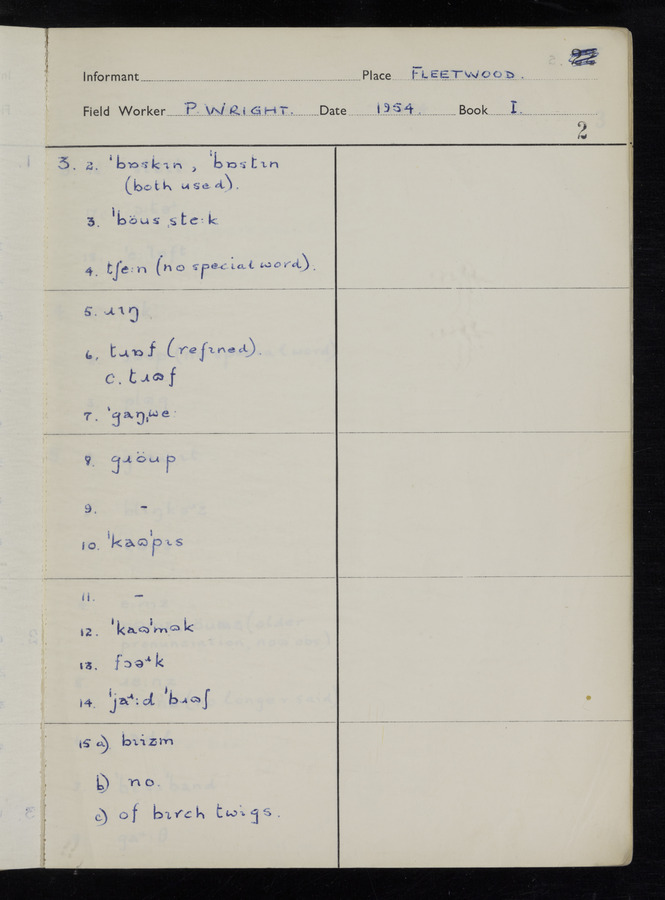 Informant Place FLEETWOOD.
Field Worker P. WRIGHT. Date 1954. Book I.
2
3. 2. ˈbɒskɪn, ˈbɒstɪn
(both used).
3. ˈböusˌste:k
4. tʃe:n (no special word).
5. ɹɪŋ
6. tɹɒf (refined).
c. tɹɷf
7. ˈgaŋˌwe:
8. gɹöup
9. –
10. ˈkaɷˈpɪs
11. –
12. ˈkaɷˈmɷk
13. fɔəʴk
14. ˈjaʴ:d ˈbɹɷʃ
15 a) bɪɪzm
b) no.
c) of bɪrch twigs.